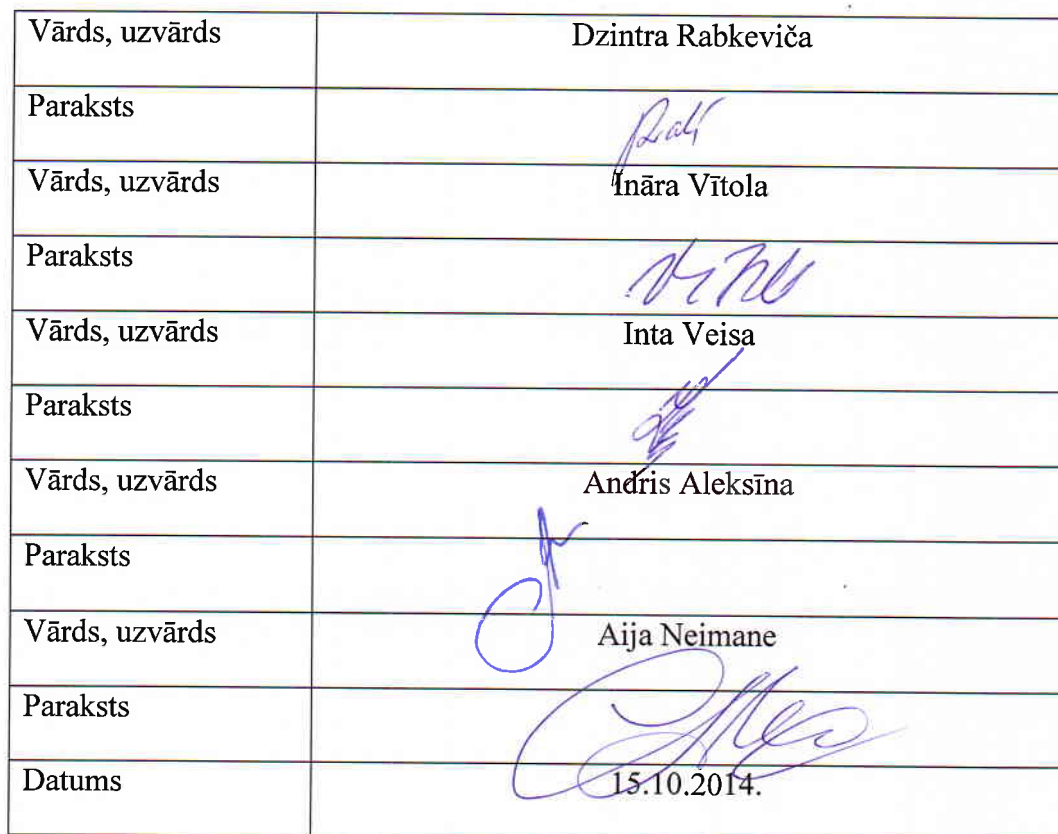 Vārds, uzvārds Dzintra Rabkeviča
Paraksts
Vārds, uzvārds Ināra Vītola
Paraksts
Vārds, uzvārds Inta Veisa
Paraksts
Vārds, uzvārds Andris Aleksīna
Paraksts
Vārds, uzvārds Aija Neimane
Paraksts
Datums 15.10.2014.